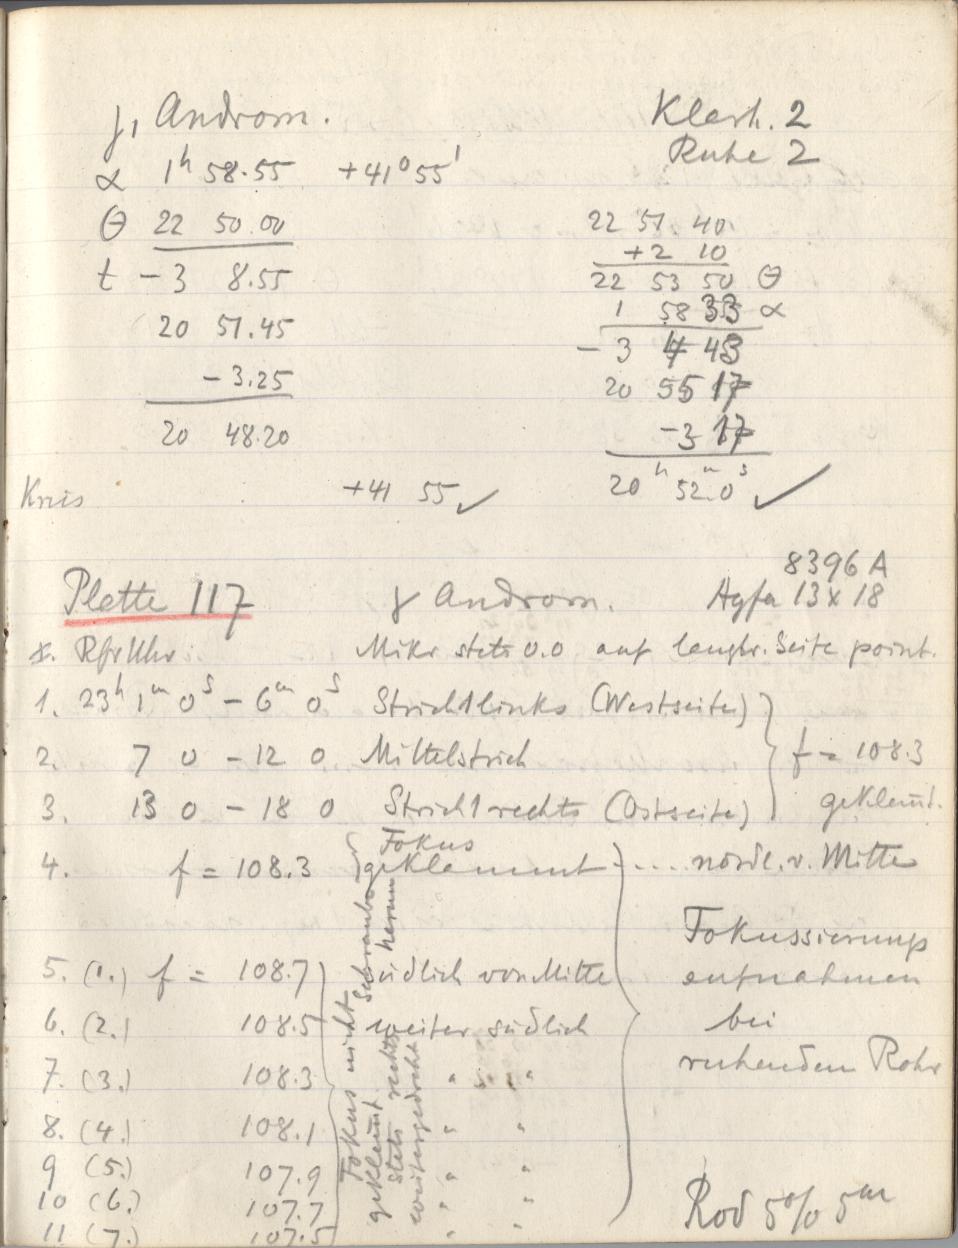 γ, Androm. Klarh. 2
Ruhe 2
α 1h 58.55 +41° 55'
θ 22 50.00 22 51. 40.
+2 10
t - 3 8.55 22 53 50 θ
1 58 33 α
20 51.45
- 3 4 43
- 3.25 20 55 17
-3 17
20 48.20
Kreis +41 55 ✓ 20h 52.m0s ✓
8396 A
Platte 117 γ Androm. Agfa 13x18
Mikr stets 0.0 auf langbr. Seite point.
1. 23h 1m 0s - 6m 0s Strich links (Westseite)
2. 7 0 - 12 0 Mittelstrich f = 108.3
3. 13 0 - 18 0 Strich rechts (Ostseite) geklemmt.
Fokus
4. f = 108.3 geklemmt .... nördl. v. Mitte
Fokussierungs
5. (1.) f = 108.7 südlich von Mitte aufnahmen
6. (2.) 108.5 weiter südlich bei
7. (3.) 108.3 " " ruhendem Rohr
8. (4.) 108.1 " "
9 (5.) 107.9 " "
10 (6.) 107.7 " "
11 (7.) 107.5 " "
Fokus nicht
geklemmt. Schraube
stets rechts herum
weitergedreht
Rod 5% 5m